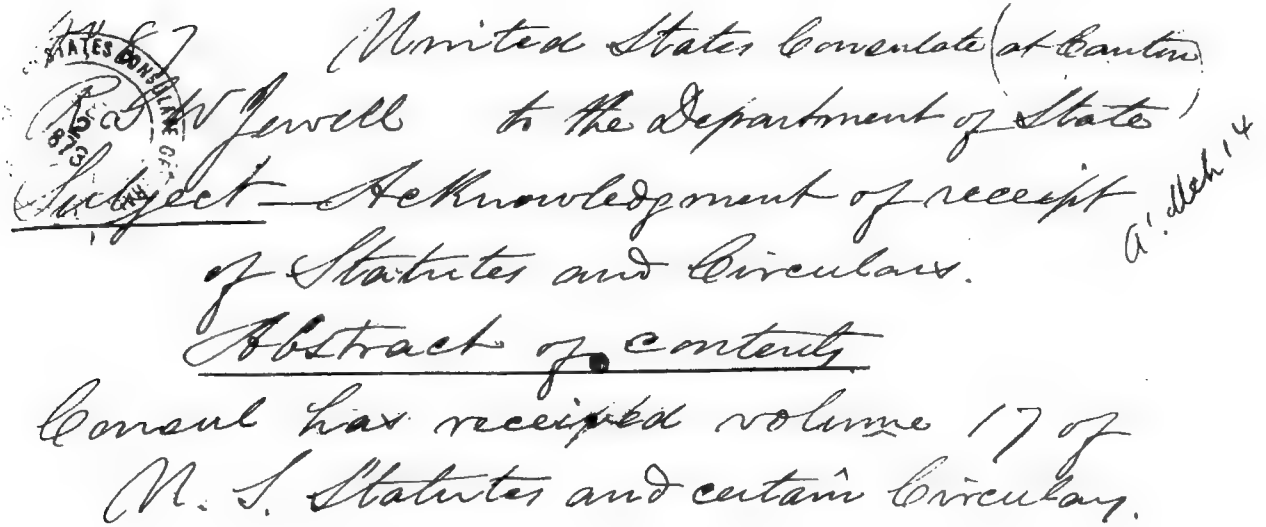 No 87 United States Consulate (at Canton)
R. G. W Jewell to the Department of State
Subject - Acknowledgment of receipt
a'. Mch 14
of Statutes and Circulars.
Abstract of contents
Consul has received volume 17 of
U. S. Statutes and certain Circulars.